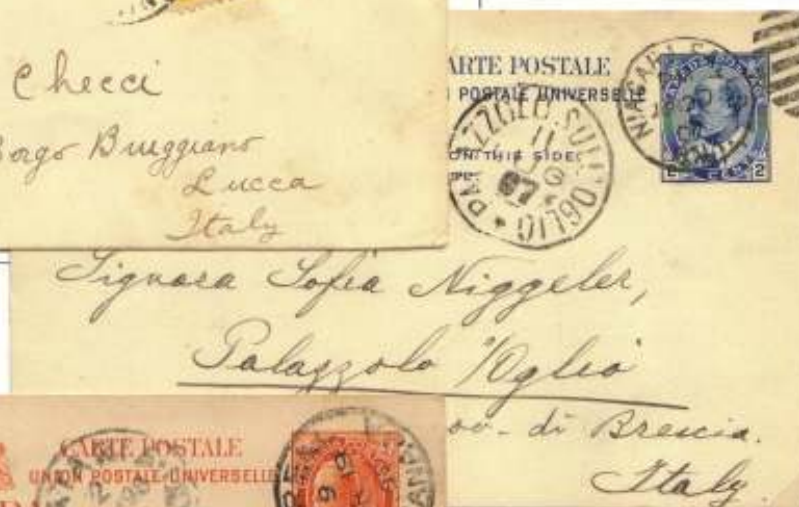 Checci
Borgo Buggiano
Lucca
Italy
CARTE POSTALE
POSTALE UNIVERSELLE
ON THIS SIDE
PALAZZOLO SULL' OGLIO
11
07
NIAGARA
2
Signora Sofia Niggeler,
Palazzolo s/Oglio
Prov. di Brescia.
Italy.
CARTE POSTALE
UNION POSTALE UNIVERSELLE